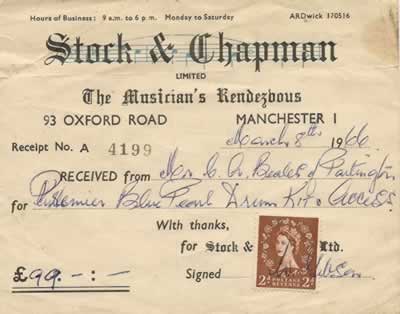 Hours of Business: 9 a.m. to 6 p.m. Monday to Saturday ARDwick 370516
Stock & Chapman
LIMITED
The Musician's Rendezbous
93 OXFORD ROAD MANCHESTER 1
March 8th 1966
Receipt No. A 4199
RECEIVED from Mr. C. A. Beales of Partington
for Premier Blue Pearl Drum Kit & Access.
With thanks,
for Stock & Ltd.
£99.-:-
Signed
2D POSTAGE REVENUE 2D